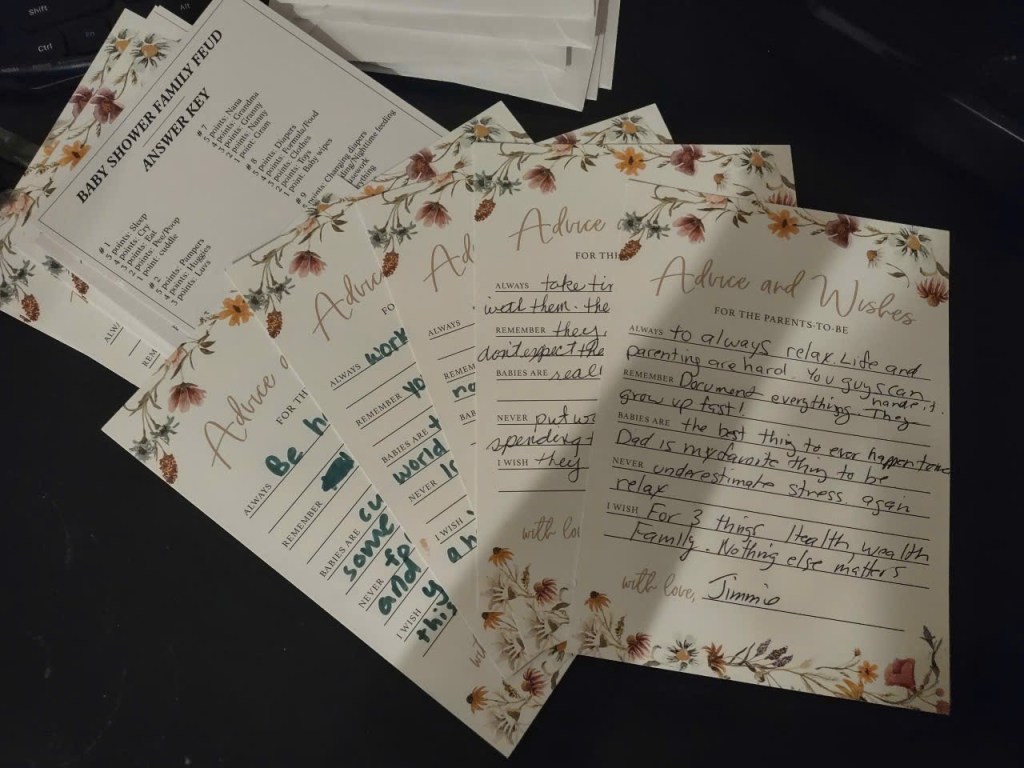 Shift
Ctrl
Alt
BABY SHOWER FAMILY FEUD
ANSWER KEY
# 1
5 points: Sleep
4 points: Cry
3 points: Eat
2 points: Pee/Poop
1 point: cuddle
# 2
5 points: Pampers
4 points: Huggies
3 points: Luvs
# 7
5 points: Nana
4 points: Grandma
3 points: Granny
2 points: Nanny
1 point: Gram
# 8
5 points: Diapers
4 points: Formula/Food
3 points: Clothes
2 points: Toys
1 point: Baby wipes
# 9
points: Changing diapers
/Nighttime feeding
ALW
REM
Advice
FOR TH
ALWAYS Be h
REMEMBER
BABIES ARE cu
some
NEVER
and
I WISH y
thi
wit
Advice
FO
ALWAYS work
REMEMBER yo
BABIES ARE t
world
NEVER
I WISH
Ad
ALWAYS
REMEM
no
BABIES
Advice
FOR TH
ALWAYS take tir
with them. the
REMEMBER they
don't expect the
BABIES ARE reall
NEVER put wo
spending t
I WISH they
with lo
Advice and Wishes
FOR THE PARENTS-TO-BE
ALWAYS to always relax. Life and
parenting are hard. You guys can
handle it.
REMEMBER Document everything. They
grow up fast!
BABIES ARE the best thing to ever happen to me
Dad is my favorite thing to be
NEVER underestimate stress again
relax
I WISH For 3 things Health, wealth
Family. Nothing else matters
with love, Jimmie